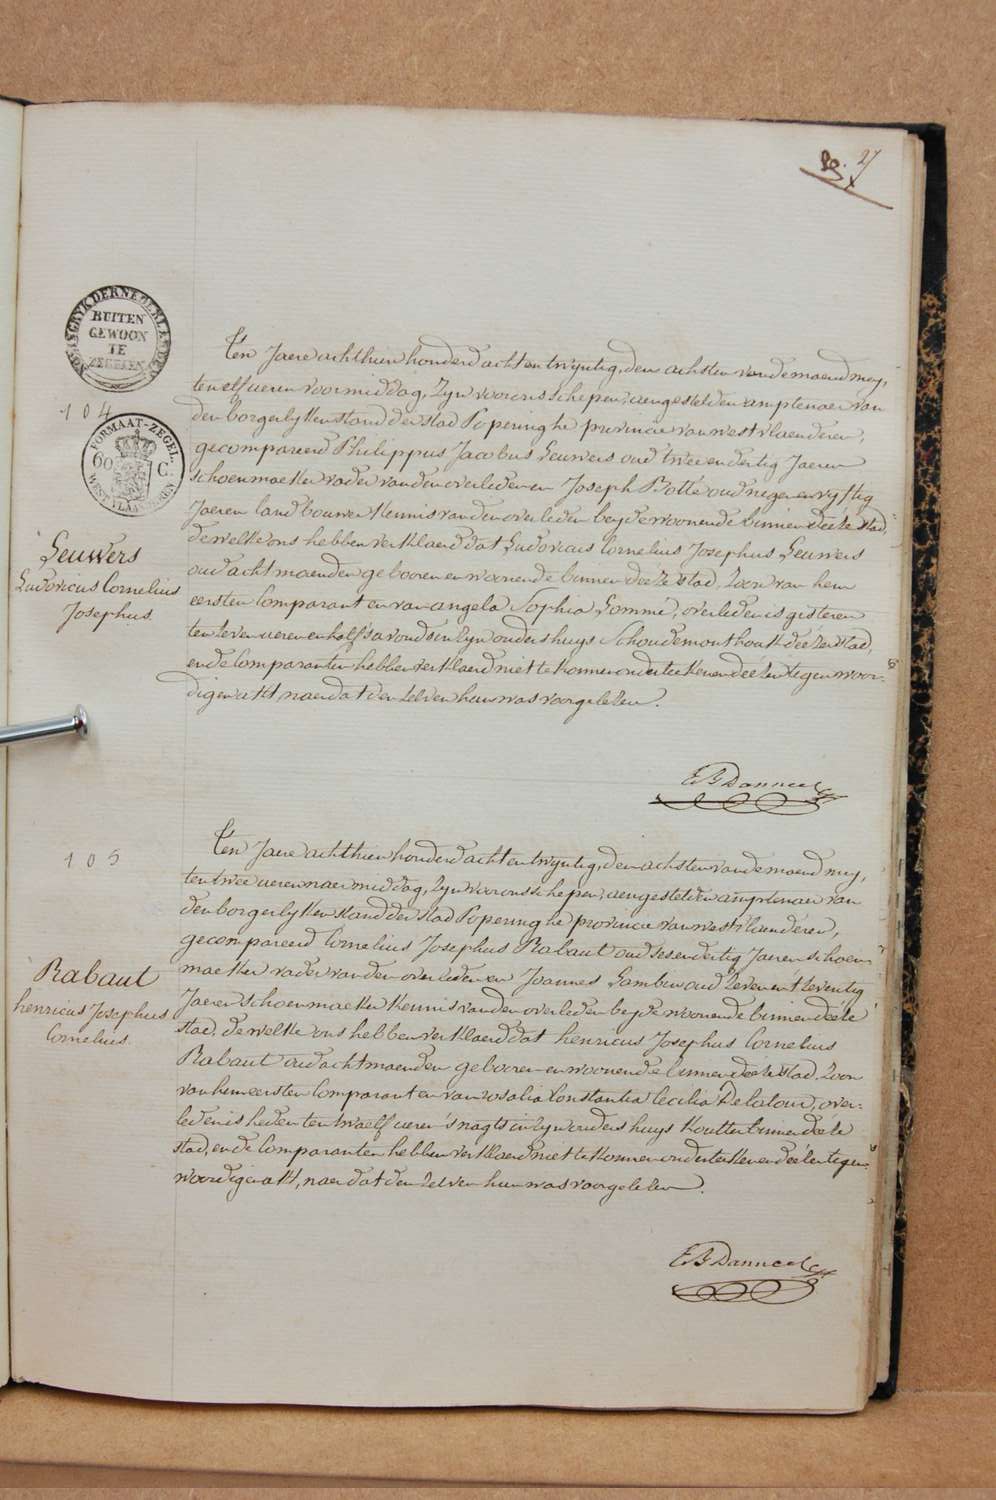 27
KONINGRYK DER NEDERLANDEN
BUITEN
GEWOON
TE
ZEGELEN
104
FORMAAT-ZEGEL
60 C.
WEST VLAANDEREN
Leuwers
Ludovicus Cornelius
Josephus
Ten Jaere achthien honderd acht en twyntig, den achsten van de maend mey,
ten elf ueren voormiddag, Zyn voor ons schepen, aengestelden amptenaer van
den borgerlyken stand der stad Poperinghe provincie van westvlaenderen,
gecompareerd Philippus Jacobus Leuwers oud twee en dertig Jaeren
schoenmaeker vader van den overledenen Joseph Botté oud negen en vyftig
Jaeren landbouwer kennis van den overleden beyde woonende binnen deéze stad,
de welke ons hebben verklaerd dat Ludovicus Cornelius Josephus Leuwers
oud acht maenden gebooren en woonende binnen deeze stad, Zoon van hem
eersten Comparant en van angela Sophia Lommé, overleden is gisteren
ten zeven ueren en half 's avonds in Zyn ouders huys Schoudemonthoek deéze stad,
en de Comparanten hebben verklaerd niet te konnen onderteekenen deézen tegenwoor-
digen akt, naer dat den zelven hun was voorgelezen.
E B Danneel
105
Rabaut
henricus Josephus
Cornelius.
Ten Jaere achthien honderd acht en twyntig, den achsten van de maend mey,
ten twee ueren naermiddag, Zyn voor ons schepen, aengestelden amptenaer van
den borgerlyken stand der stad Poperinghe provincie van westvlaenderen,
gecompareerd Cornelius Josephus Rabaut oud ses en dertig Jaeren schoen-
maeker vader van den overledenen Joannes Lambin oud zeven en t'zeventig
Jaeren schoenmaeker kennis van den overleden beyde woonende binnen deéze
stad, de welke ons hebben verklaerd dat henricus Josephus Cornelius
Rabaut oud acht maenden gebooren en woonende binnen deeze stad, Zoon
van hem eersten Comparant en van rosalia Constantia Cecilia Delatour, over-
leden is heden ten twaelf ueren 's nagts in Zyn ouders huys Koutter binnen deéze
stad, en de Comparanten hebben verklaerd niet te konnen onderteekenen deezen tegen-
woordigen akt, naer dat den zelven hun was voorgelezen.
E B Danneel